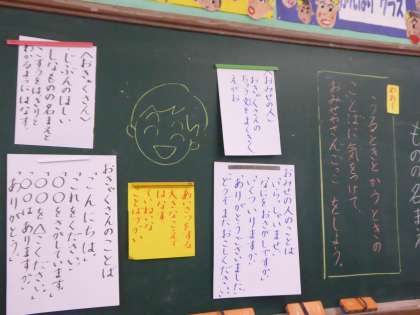 ものの名まえ
めあて
うるときとかうときの
ことばに気をつけて、
おみせやさんごっこをしよう。
〈おみせの人〉
おきゃくさんの
えがお
おみせの人のことば
「いらっしゃいませ。」
「なにをおさがしですか。」
「いくついりますか。」
「ありがとうございました。」
「どうぞまたおこしください。」
あいさつをする
大きなこえで
はなす
ていねいな
ことばづかい
〈おきゃくさん〉
じぶんのほしい
しなものの名まえと
こすうをはっきりと
わかるようにはなす。
おきゃくさんのことば
「こんにちは。」
「これをください。」
「〇〇をさがしています。」
「〇〇を△こください。」
「〇〇はありますか。」
「ありがとう。」